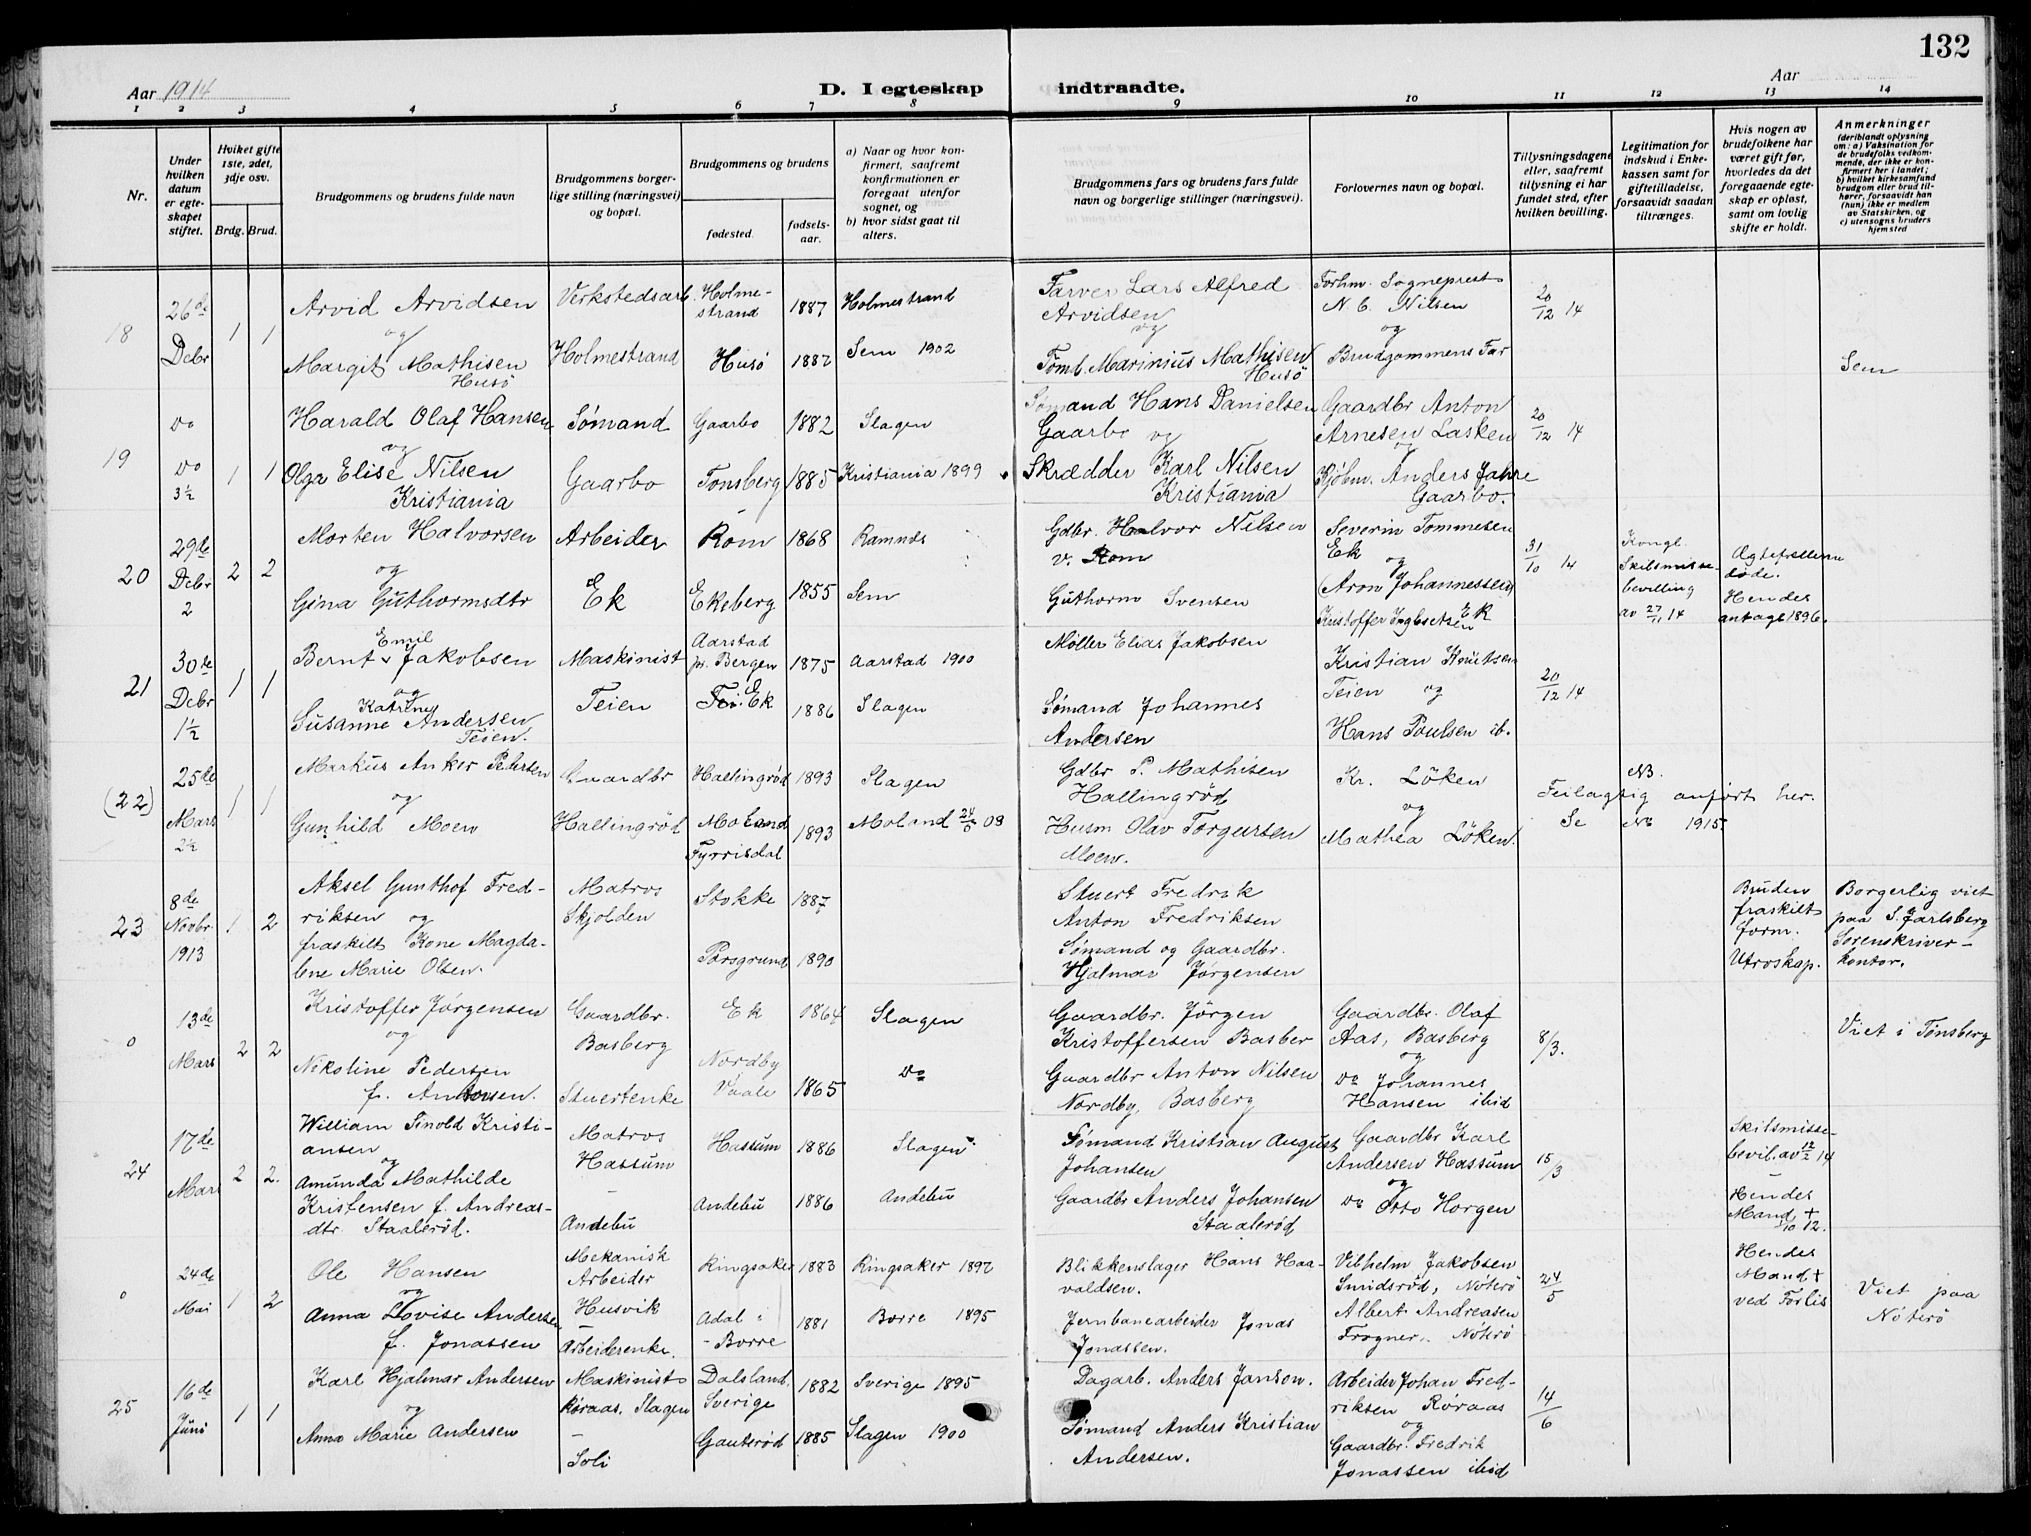 132
Aar 1914
D. I egteskap
indtraadte.
Aar
1 2 3 4 5 6 7 8 9 10 11 12 13 14
Nr.
Under hvilken datum er egteskapet stiftet.
Hviket gifte 1ste, 2det, 3dje osv.
Brdg. Brud.
Brudgommens og brudens fulde navn
Brudgommens borgerlige stilling (næringsvei) og bopæl.
Brudgommens og brudens
fødested.
fødselsaar.
a) Naar og hvor konfirmert, saafremt konfirmationen er foregaat utenfor sognet, og
b) hvor sidst gaat til alters.
Brudgommens fars og brudens fars fulde navn og borgerlige stillinger (næringsvei).
Forlovernes navn og bopæl.
Tillysningsdagene eller, saafremt tillysning ei har fundet sted, efter hvilken bevilling.
Legitimation for indskud i Enkekassen samt for giftetilladelse, forsaavidt saadan tiltrænges.
Hvis nogen av brudefolkene har været gift før, hvorledes da det foregaaende egteskap er opløst, samt om lovlig skifte er holdt.
Anmerkninger
(deriblandt oplysning om: a) Vaksination for de brudefolks vedkommende, der ikke er konfirmert her i landet; b) hvilket kirkesamfund brudgom eller brud tilhører, forsaavidt han (hun) ikke er medlem av Statskirken, og c) utensogns bruders hjemsted
18
26de Debr
1 1
Arvid Arvidsen
og
Margit Mathisen
Husö
Verkstedsarb.
Holmestrand
Holmestrand 1887 Holmestrand
Husö 1882 Sem 1902
Farver Lars Alfred
Arvidsen
og
Tömb. Marinius Mathisen
Husö
Forhv. Sogneprest
N. C. Nilsen
og
Brudgommens Far
20/12 14
Sem
19
do
do
3½
1 1
Harald Olaf Hansen
og
Olga Elise Nilsen
Kristiania
Sømand
Gaarbo
Gaarbo 1882 Slagen
Tønsberg 1885 Kristiania 1899
Sømand Hans Danielsen
Gaarbo og
Skrædder Karl Nilsen
Kristiania
Gaardbr Anton
Arnesen Lasken
og
Kjøbm. Anders Jahre
Gaarbo.
20/12 14
20
29de Debr
2
2 2
Morten Halvorsen
og
Gina Guthormsdtr
Arbeider
Ek
Rom 1868 Ramnes
Ekeberg 1855 Sem
Gdbr. Halvor Nilsen
v. Rom
Guthorm Svensen
Severin Tommesen
Ek og
(Aron Johannessen)
Kristoffer Ingbretsen Ek
31/10 14
Kongl.
Skilsmissebevilling
av 27/11 14
Ægtefællerne
døde.
Hendes
antagl 1896.
21
30te Debr
1½
1 1
Bernt Emil Jakobsen
og
Susanne Katrine Andersen
Teien.
Maskinist
Teien
Aarstad
pr. Bergen 1875 Aarstad 1900
Ek 1886 Slagen
Møller Elias Jakobsen
Sømand Johannes
Andersen
Kristian Knutsen
Teien og
Hans Poulsen ib.
20/12 14
(22)
25de Mars
2½
1 1
Markus Anker Pedersen
og
Gunhild Moen
Gaardbr
Hallingrød
Hallingrød 1893 Slagen
Moland
Fyrrisdal 1893 Moland 24/5 08
Gdbr P. Mathisen
Hallingrød
Husm Olav Torgursen
Moen.
Kr. Löken
og
Mathea Löken.
NB.
Feilagtig anført her.
Se No 1915
23
8de Novbr.
1913
1 2
Aksel Gunthof Fredriksen
og
fraskilt Kone Magdalene Marie Olsen.
Matros
Skjolden
Stokke 1887
Porsgrund 1890
Stuert Fredrik
Anton Fredriksen
Sømand og Gaardbr.
Hjalmar Jørgensen
Bruden
fraskilt
form.
Utroskap.
Borgerlig viet
paa S. Jarlsberg
Sorenskriverkontor.
0
13de Mars
2 2
Kristoffer Jörgensen
og
Nikoline Pedersen
f. Antonsen.
Gaardbr.
Basberg
Stuertenke
Ek 1864 Slagen
Nordby
Vaale 1865 do
Gaardbr. Jörgen
Kristoffersen Basber
Gaardbr Anton Nilsen
Nordby, Basberg
Gaardbr. Olaf
Aas, Basberg
og
do Johannes
Hansen ibid
8/3.
Viet i Tønsberg
24
17de Mars
2 2.
William Tinold Kristiansen
og
Amunda Mathilde
Kristensen f. Andreasdtr Staalerød.
Matros
Hassum
-
Andebu
Hassum 1886 Slagen
Andebu 1886 Andebu
Sømand Kristian August
Johansen
Gaardbr Anders Johansen
Staalerød
Gaardbr Karl
Andersen Hassum
og
do Otto Horgen
15/3
Skilsmissebevil. av 12/2 14
Hendes
Mand +
/10 12.
0
24de Mai
1 2
Ole Hansen
og
Anna Lovise Andersen
f. Jonassen
Mekanisk
Arbeider
Husvik
-
Arbeiderenke.
Ringsaker 1883 Ringsaker 1897
Adal i
Borre 1881 Borre 1895
Blikkenslager Hans Haavaldsen.
Jernbanearbeider Jonas
Jonassen.
Vilhelm Jakobsen
Smidsrød, Nøterø
Albert Andreasen
Frogner. Nøterö
24/5
Hendes
Mand +
ved Forlis
Viet paa
Nöterö
25
16de Juni
1 1
Karl Hjalmar Andersen
og
Anna Marie Andersen
Maskinist
Røraas. Slagen
-
Soli
Dalsland.
Sverige 1882 Sverige 1895
Gauterød 1885 Slagen 1900
Dagarb. Anders Janson.
Sømand Anders Kristian
Andersen.
Arbeider Johan Fredriksen Røraas
og
Gaardbr. Fredrik
Jonassen ibid
14/6